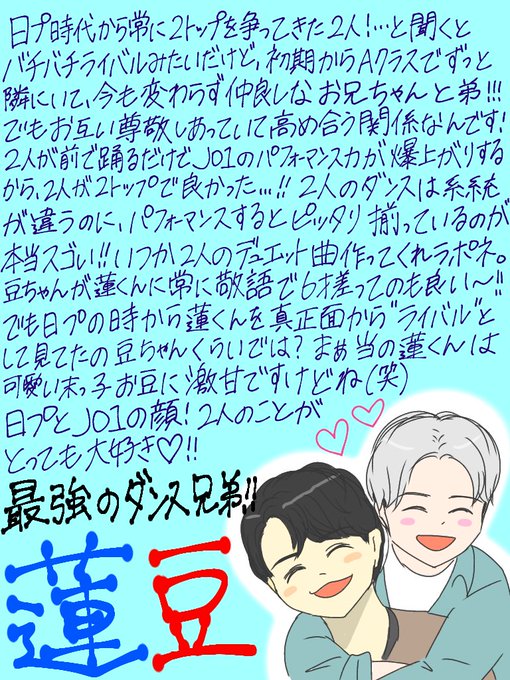 日プ時代から常に2トップを争ってきた2人!…と聞くと
バチバチライバルみたいだけど、初期からAクラスでずっと
隣にいて、今も変わらず仲良しな お兄ちゃんと弟!!!
でもお互い尊敬しあっていて高め合う関係なんです!
2人が前で踊るだけでJO1のパフォーマンス力が爆上がりする
から、2人が2トップで良かった…!! 2人のダンスは系統
が違うのに、パフォーマンスするとピッタリ揃っているのが
本当スゴい!!いつか2人のデュエット曲作ってくれラポネ。
豆ちゃんが蓮くんに常に敬語で6才差ってのも良い〜!!
でも日プの時から蓮くんを真正面から"ライバル"と
して見てたの豆ちゃんくらいでは?まぁ当の蓮くんは
可愛い末っ子お豆に激甘ですけどね(笑)
日プとJO1の顔!2人のことが
とっても大好き♡!!
最強のダンス兄弟!!
蓮豆